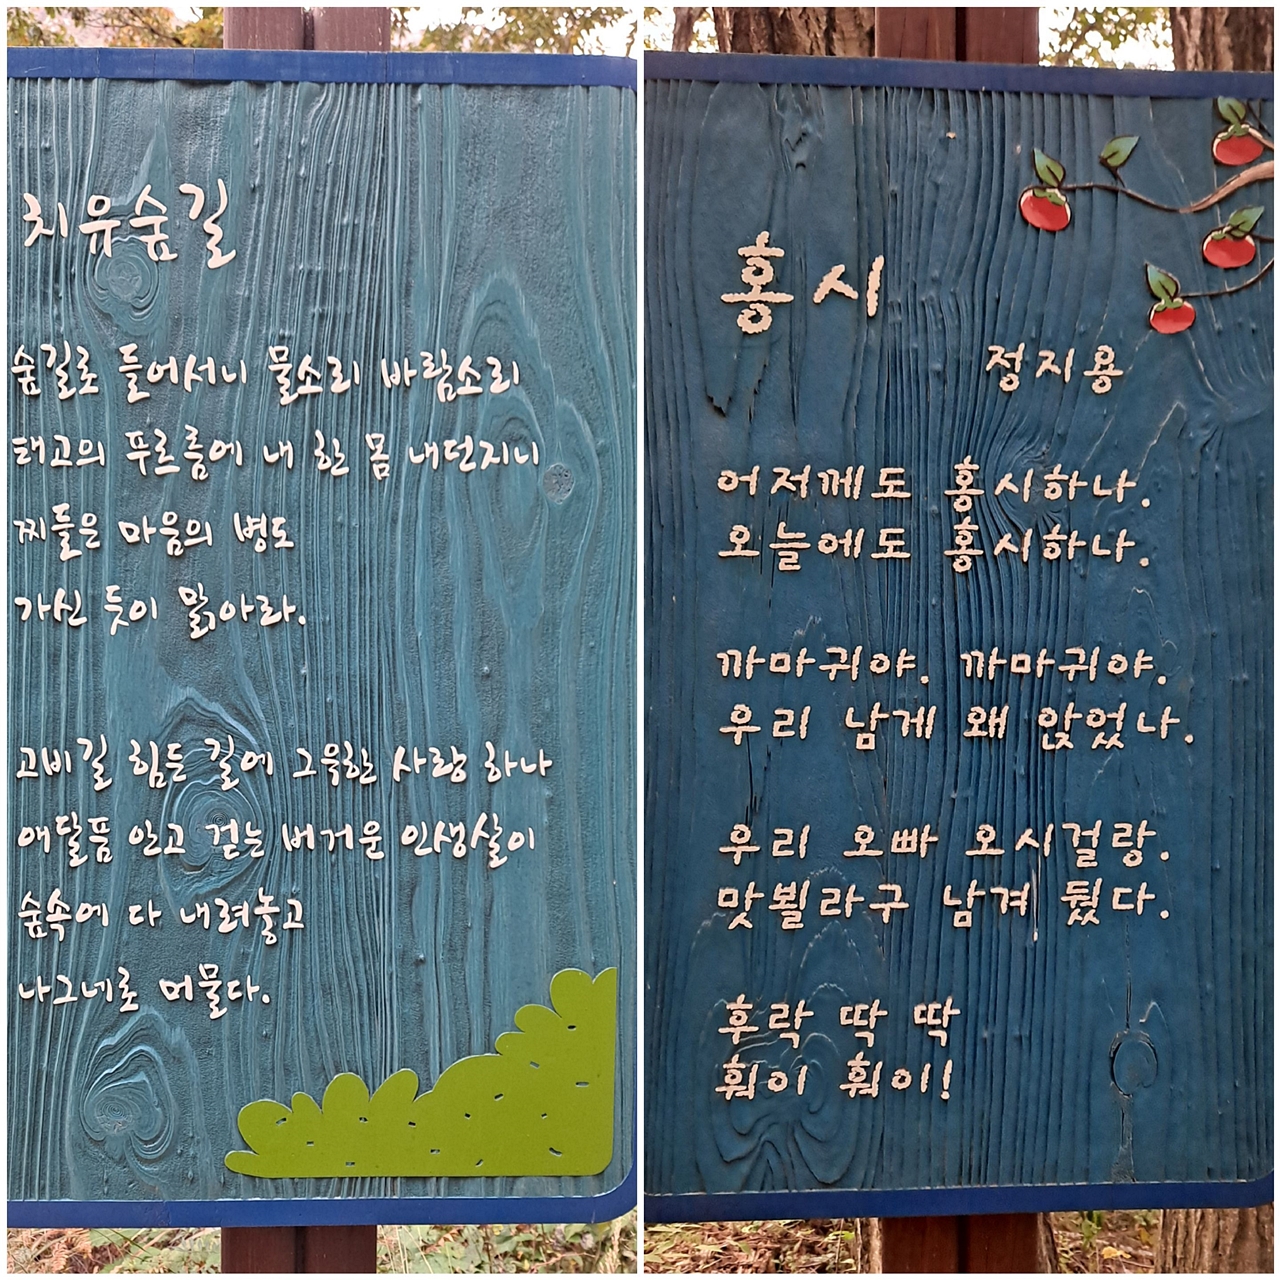 치유숲길
숲길로 들어서니 물소리 바람소리
태고의 푸르름에 내 한 몸 내던지니
찌들은 마음의 병도
가신 듯이 맑아라.
고비길 힘든 길에 그윽한 사랑 하나
애달픔 안고 걷는 버거운 인생살이
숲속에 다 내려놓고
나그네로 머물다.
홍시
정지용
어저께도 홍시하나.
오늘에도 홍시하나.
까마귀야. 까마귀야.
우리 남게 왜 앉었나.
우리 오빠 오시걸랑.
맛뵐라구 남겨 뒀다.
후락 딱 딱
훠이 훠이!